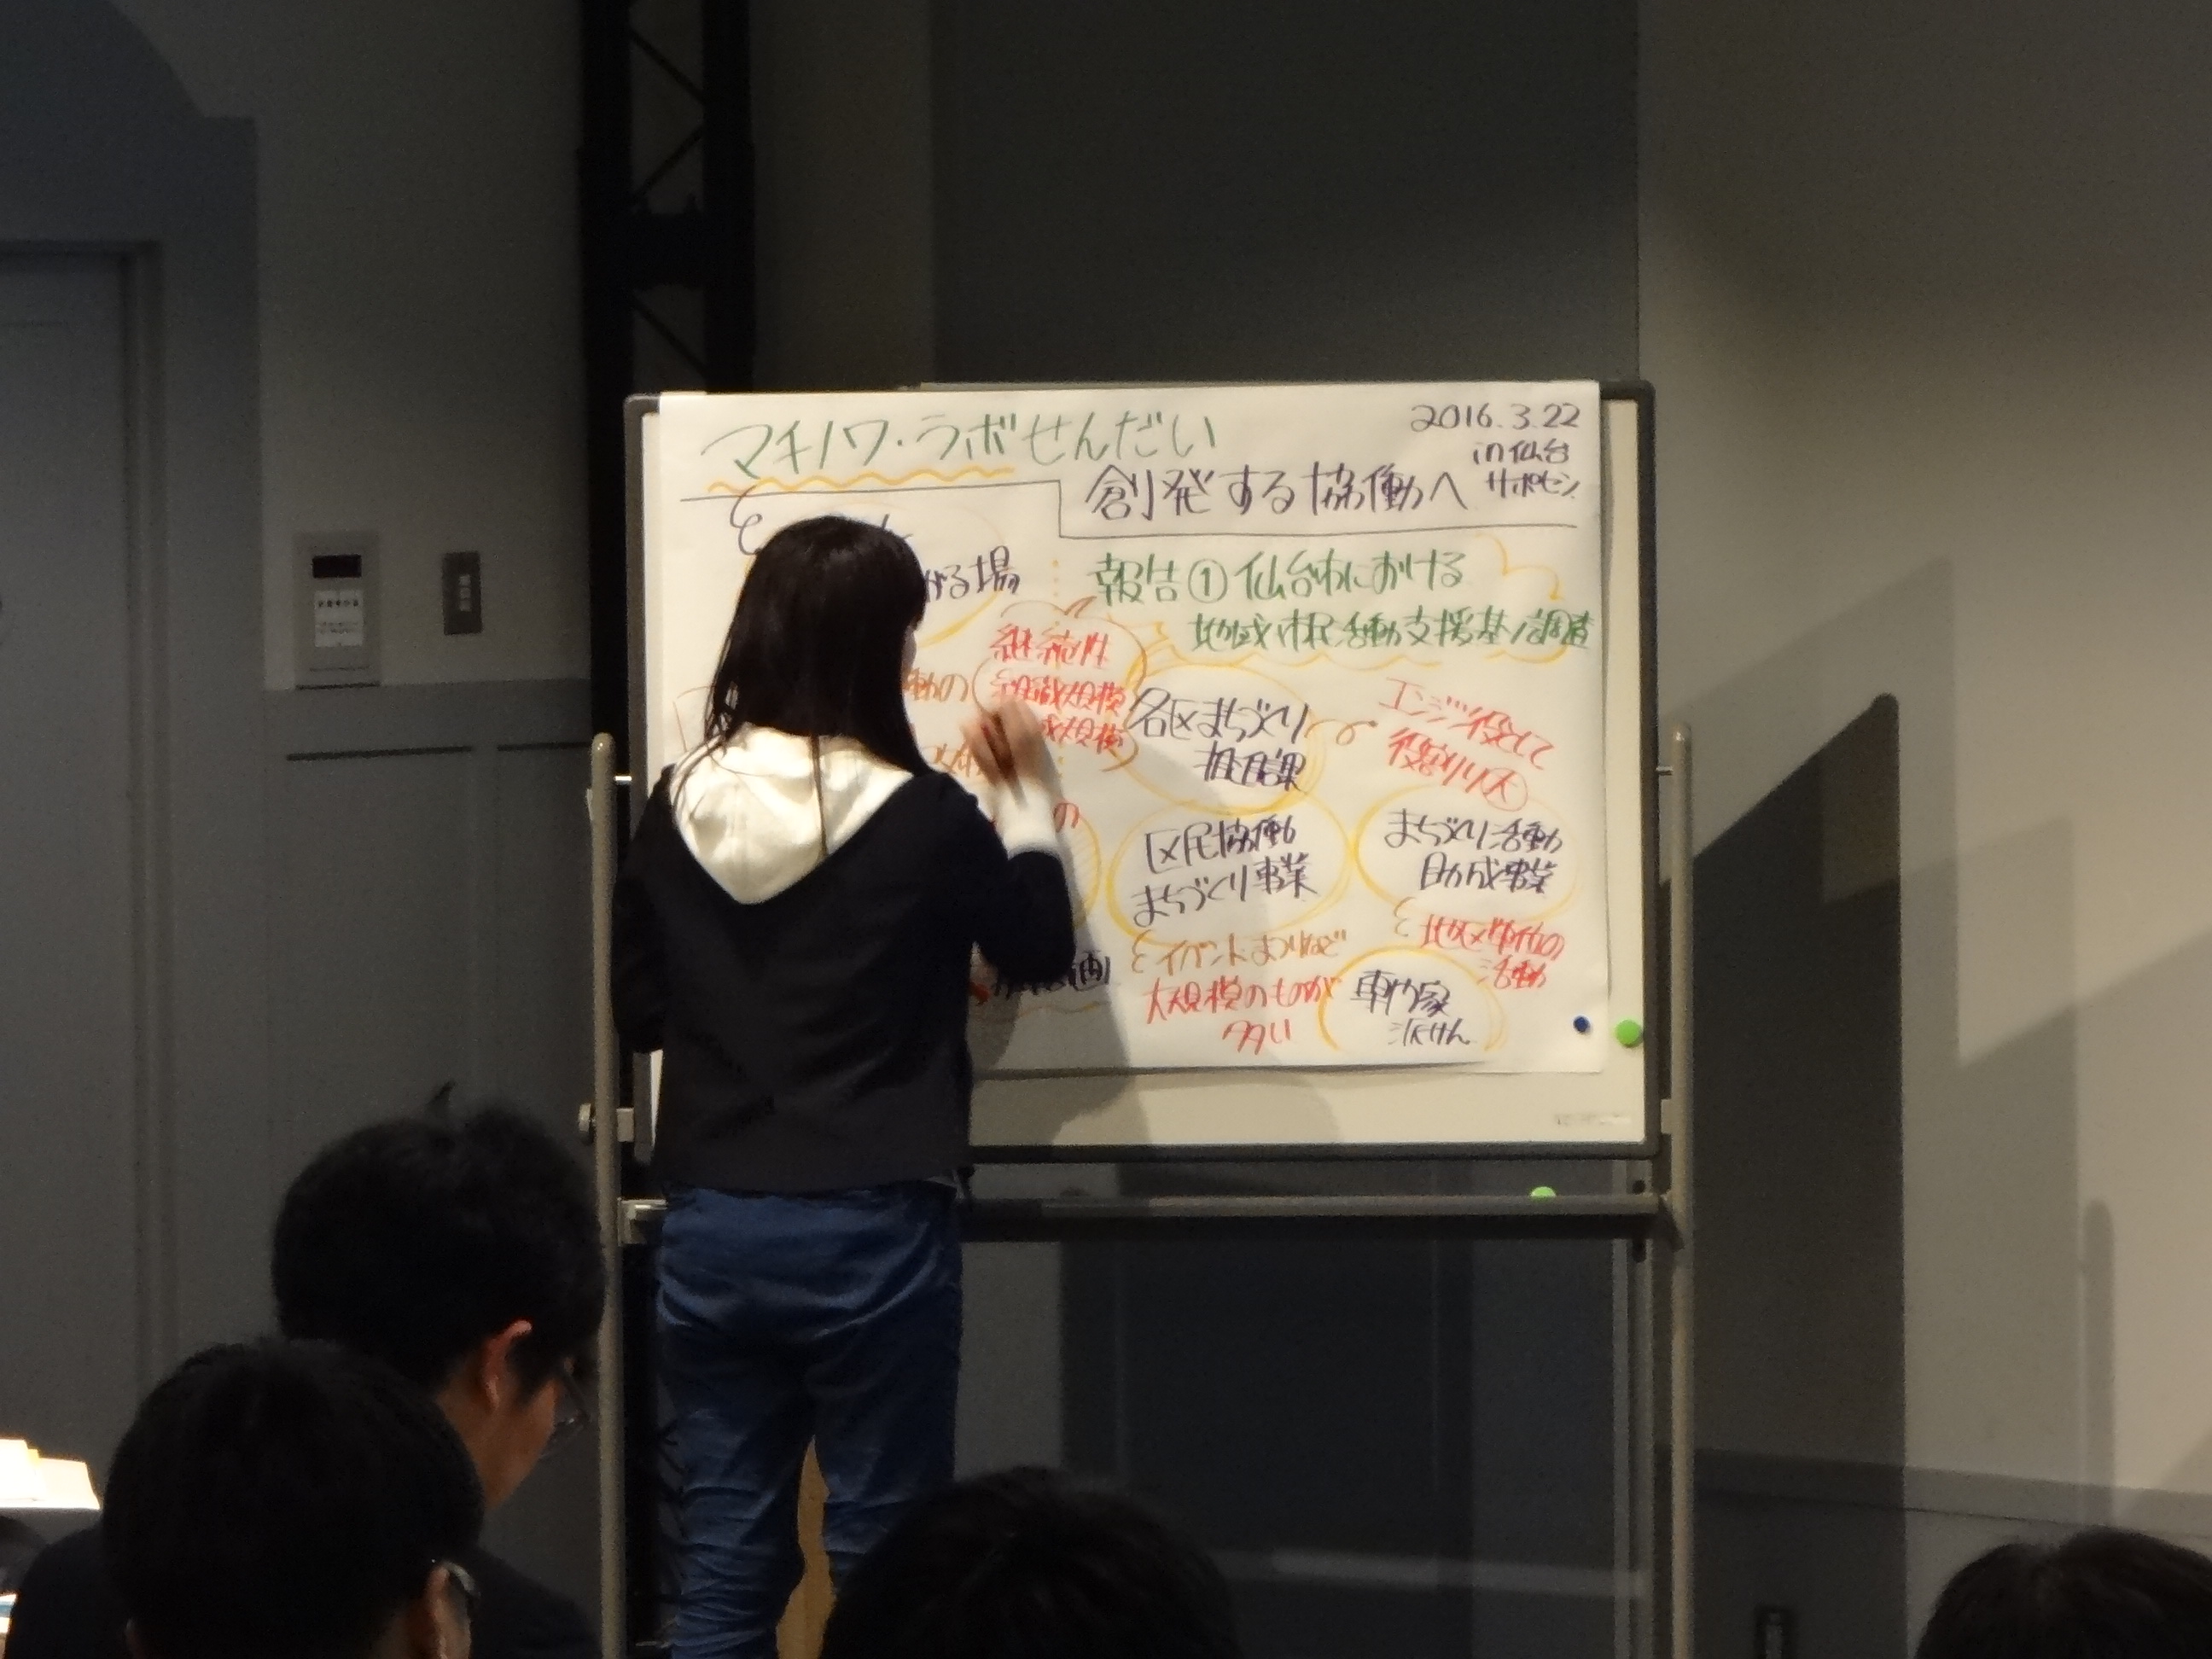 マチノワ・ラボせんだい
2016.3.22
in 仙台
サポセン
創発する協働へ
がる場
報告①仙台市における
地域・市民活動支援基ソ調査
継続性
動の
組織規模
規模
各区まちづくり
推進課
エンジン役として
役割り大
の
区民協働
まちづくり事業
まちづくり活動
助成事業
イベントまつりなど
大規模のものが
多い
地区単位の
活動
画
専門家
派けん